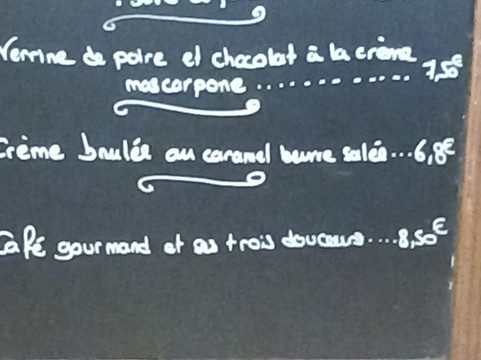 Verrine de poire et chocolat à la crème
mascarpone .............. 7,50€
Crème brulée au caramel beurre salée...6,8€
Café gourmand et ses trois douceurs....8,50€